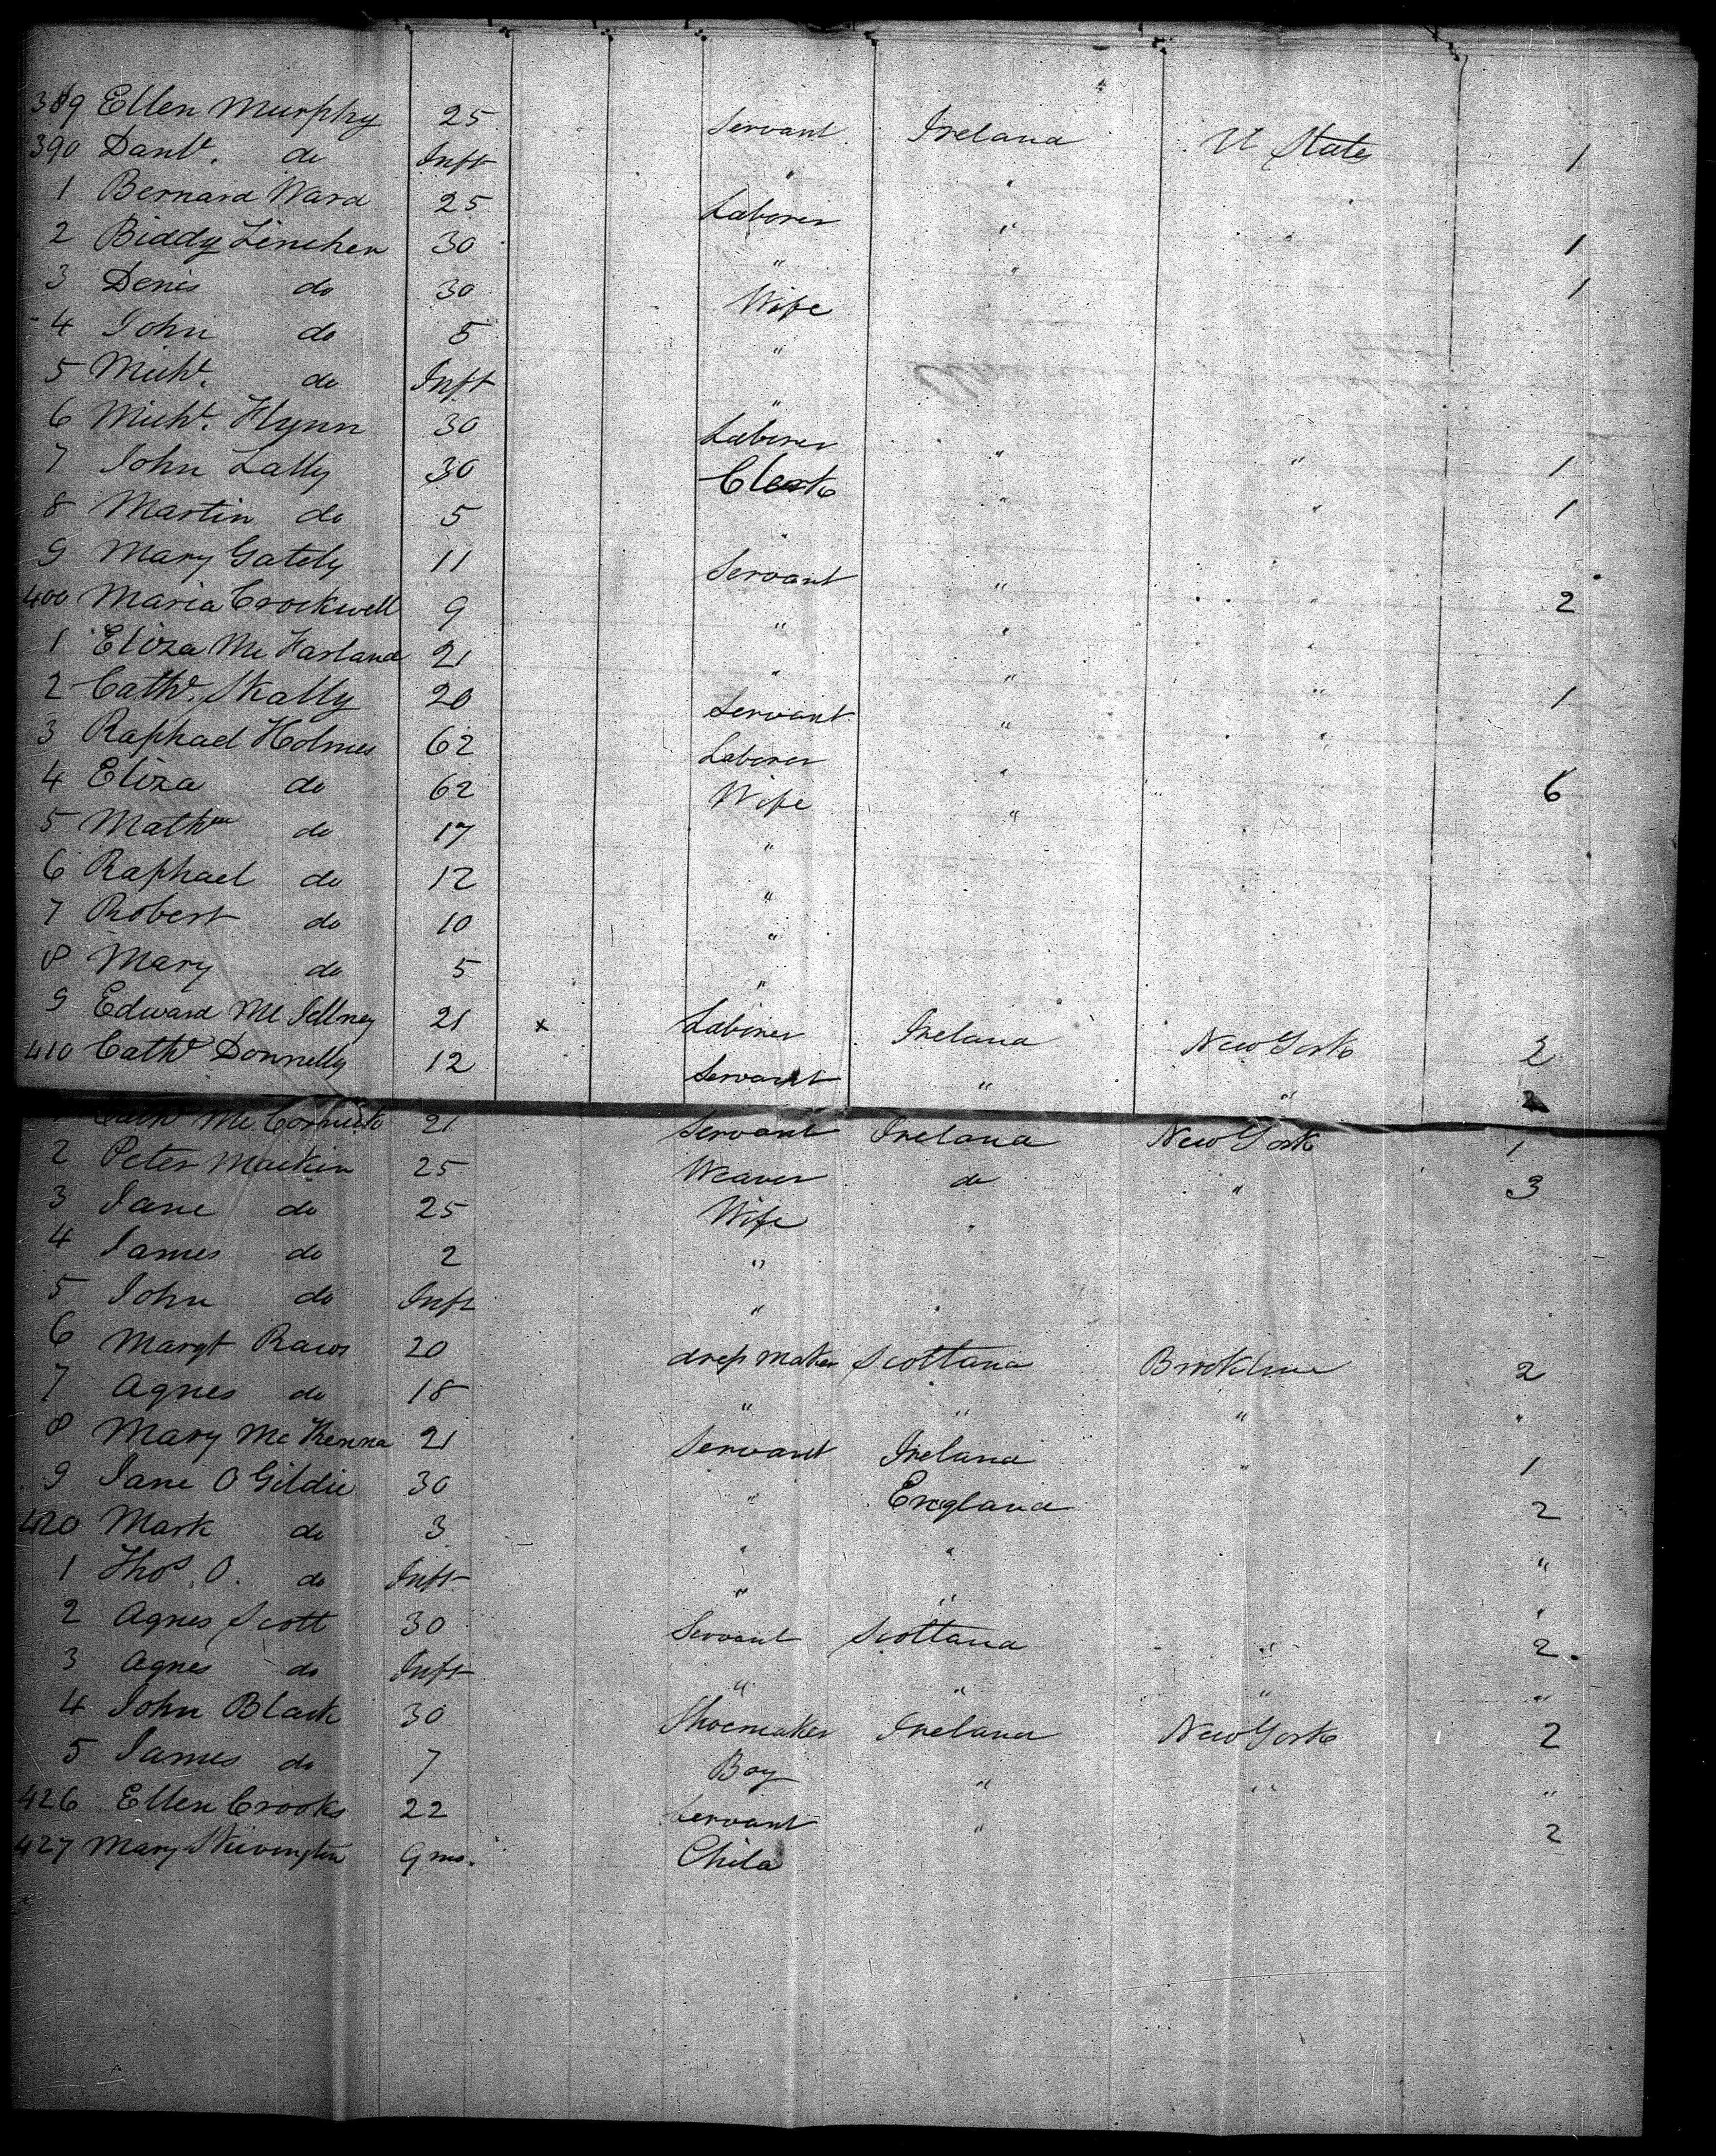 389 Ellen Murphy 25 Servant Ireland U States 1
390 Danl. do Inft " "
1 Bernard Ward 25 Laborer " " 1
2 Biddy Linehen 30 " " 1
3 Denis do 30 Wife
4 John do 5 "
5 Michl. do Inft "
6 Michl. Flynn 30 Laborer " " 1
7 John Lally 30 Clerk " " 1
8 Martin do 5 "
9 Mary Gately 11 Servant " " 2
400 Maria Crockwell 9 " " "
1 Eliza McFarland 21 " " " 1
2 Cathe. Skally 20 Servant " "
3 Raphael Holmes 62 Laborer " " 6
4 Eliza do 62 Wife "
5 Mathw do 17 "
6 Raphael do 12 "
7 Robert do 10 "
8 Mary do 5 "
9 Edward 21 x Laborer Ireland New York 2
410 Cathe Donnelly 12 Servant " " 2
Mc 21 Servant Ireland New York 1
2 Peter Mackin 25 Weaver do " 3
3 Jane do 25 Wife "
4 James do 2 "
5 John do Inft " "
6 Margt 20 dress maker Scotland 2
7 Agnes do 18 " " " "
8 Mary McKenna 21 Servant Ireland " 1
9 Jane O Gildie 30 " England 2
420 Mark do 3 " " "
1 Thos. O. do Inft " " "
2 Agnes Scott 30 Servant Scotland " 2
3 Agnes do Inft " " " "
4 John Black 30 Shoemaker Ireland New York 2
5 James do 7 Boy " " "
426 Ellen Crooks 22 Servant " 2
427 Mary Skivington 9 mo. Child